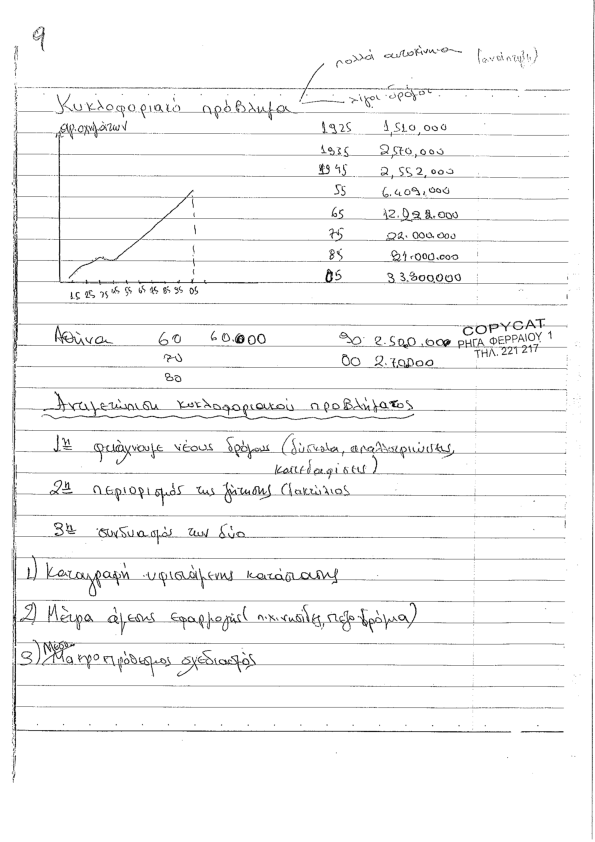 9
πολλά αυτοκίνητα (ανάπτυξη)
Κυκλοφοριακό πρόβλημα λίγοι δρόμοι
αρ. οχημάτων
1925 1,510,000
1935 2,570,000
1945 2,552,000
55 6.409.000
65
75 22.000.000
85
05 33.300.000
15 25 35 45 55 65 75 85 95 05
Αθήνα 60 60.000 90 2.500.000
70 00 2.70000
80
COPYCAT
ΡΗΓΑ ΦΕΡΡΑΙΟΥ 1
ΤΗΛ. 221 217
Αντιμετώπιση κυκλοφοριακού προβλήματος
1η φτιάχνουμε νέους δρόμους (δύσκολα, απαλλοτριώσεις,
κατεδαφίσεις)
2η περιορισμός της ζήτησης (δακτύλιος
3η συνδυασμός των δύο
1) Καταγραφή υφιστάμενης κατάστασης
2) Μέτρα άμεσης εφαρμογής (π.χ. νησίδες, πεζοδρόμια)
3) Μέσο Μακροπρόθεσμος σχεδιασμός